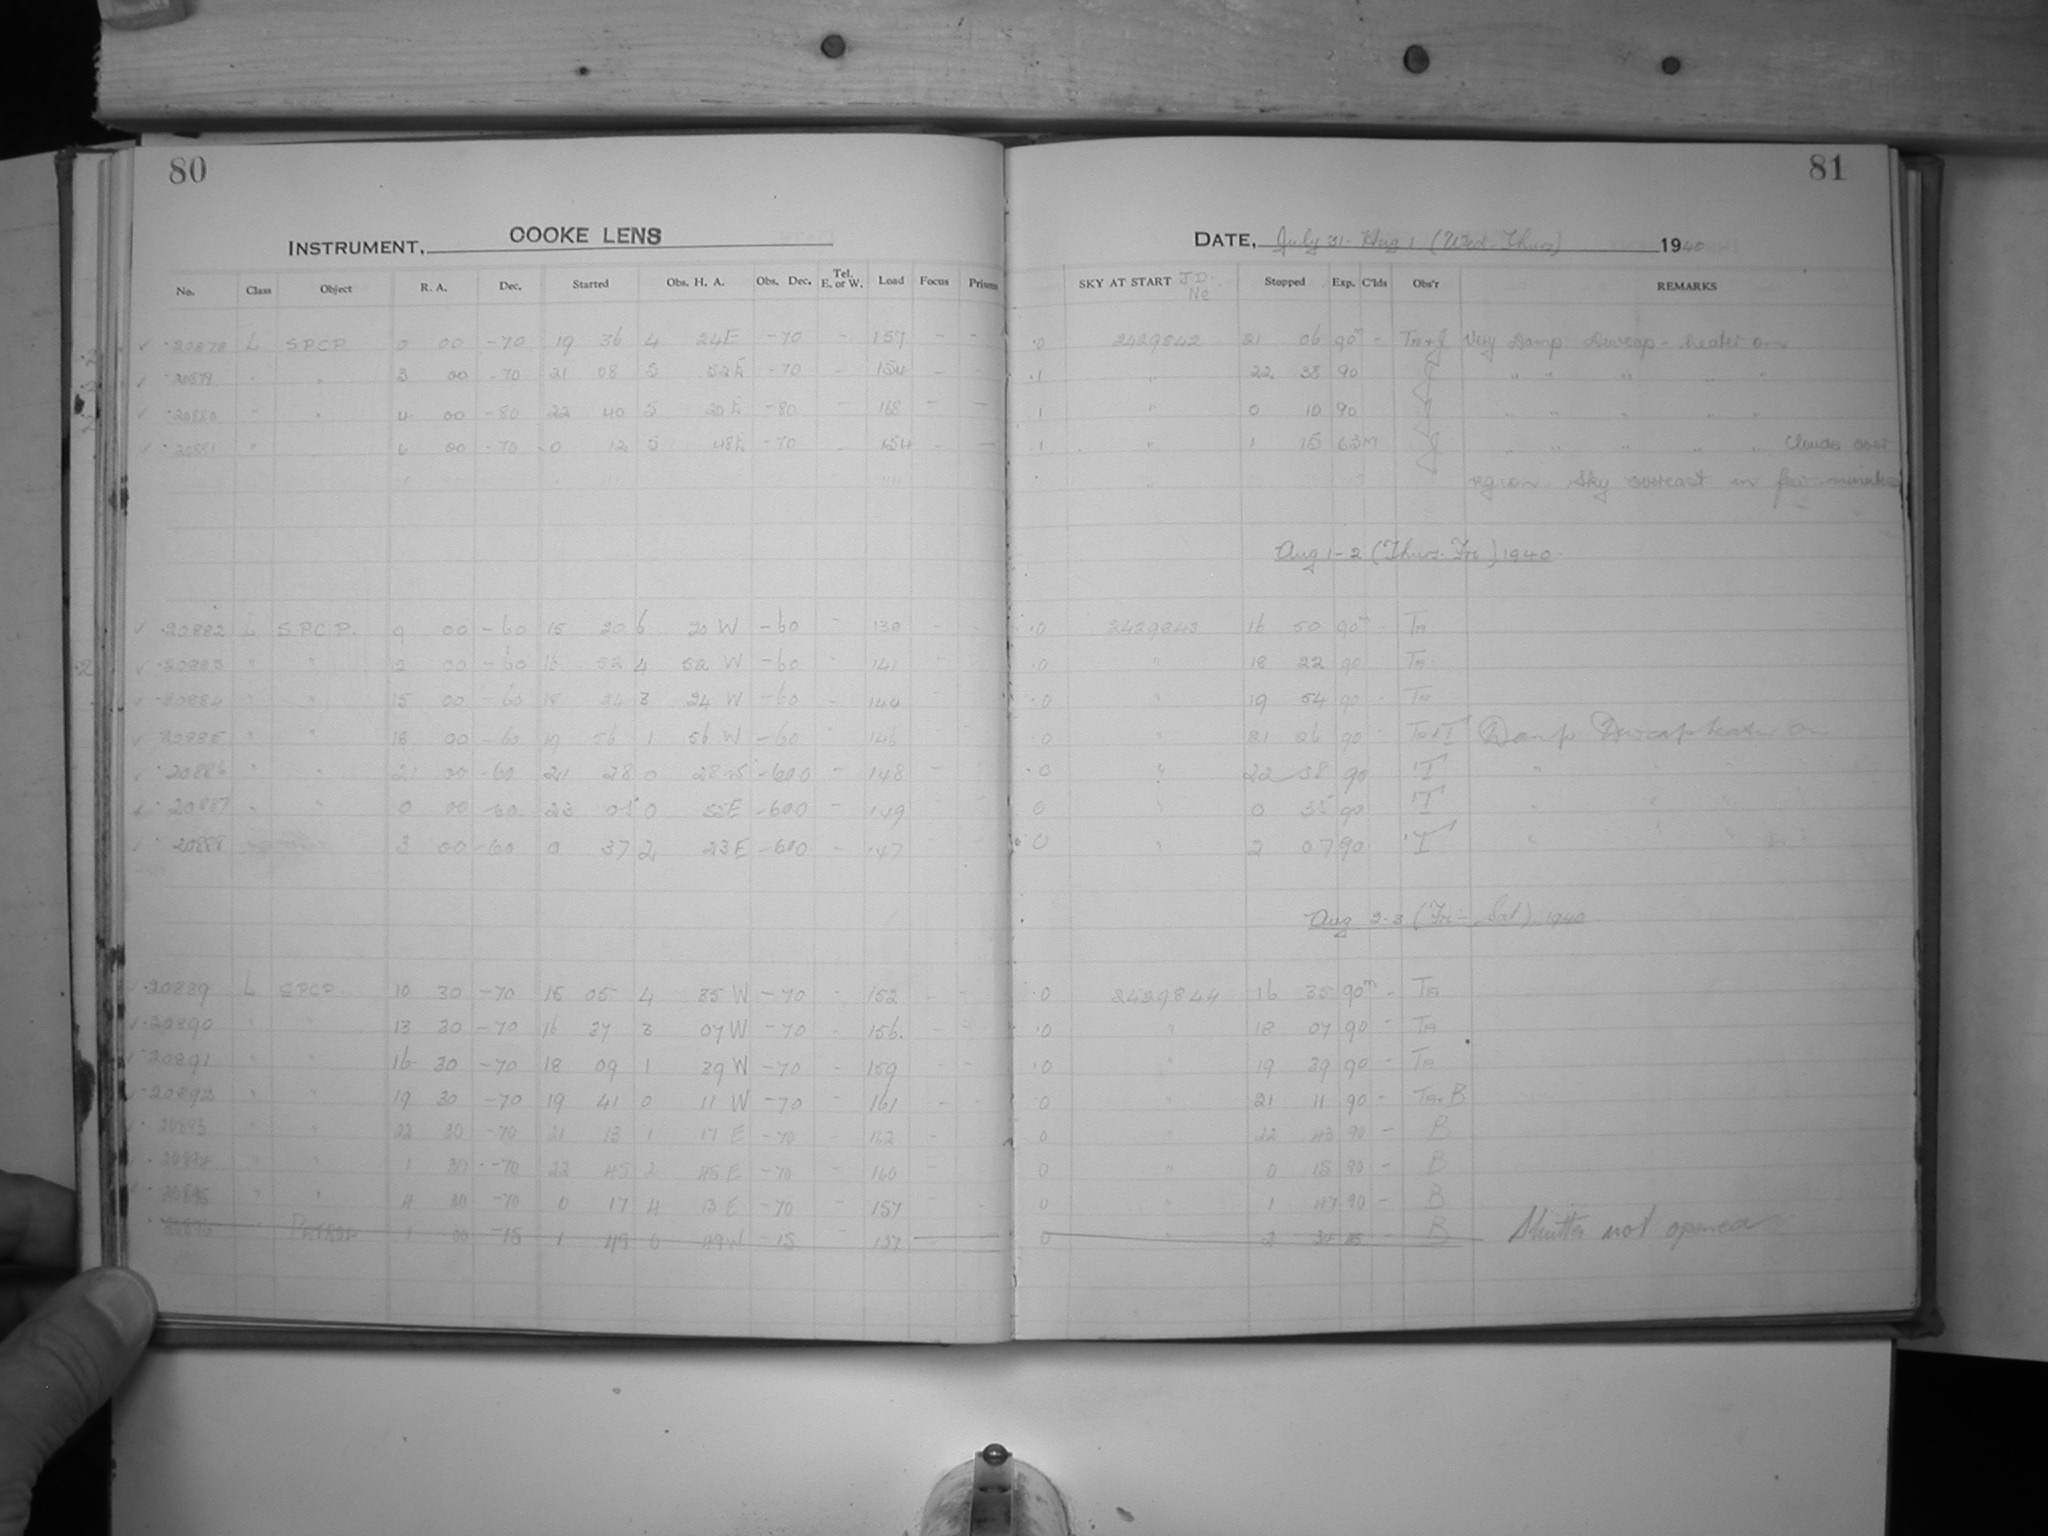 80
81
INSTRUMENT, COOKE LENS
DATE, July 31 - Aug 1 (Wed - Thurs) 1940
No. Class Object R. A. Dec. Started Obs. H. A. Obs. Dec. Tel. E. or W. Load Focus Prisms SKY AT START J.D. No Stopped Exp. C'lds Obs'r REMARKS
20878 L S.P.C.P. 0 00 -70 19 36 4 24E -70 - 157 - - 0 2429842 21 06 90m - Very Damp Dewcap - heater on
20879 " " 3 00 -70 21 08 5 52E -70 - 154 - - 1 " 22 38 90 " " " " "
20880 " " 4 00 -80 22 40 5 20E -80 - 168 - - 1 " 0 10 90 " " " " "
20881 " 6 00 -70 0 12 5 48E -70 - 154 - - 1 " 1 15 63m " " " " " Clouds over
region. Sky overcast in few minutes
Aug 1-2 (Thurs-Fri) 1940
20882 L S.P.C.P. 9 00 -60 15 20 6 20 W -60 - 130 - - 0 2429843 16 50 90m
20883 " " 00 -60 16 52 4 52 W -60 - 141 - - 0 " 18 22 90
20884 " " 15 00 -60 24 3 24 W -60 - 144 - - 0 " 19 54 90
20885 " " 18 00 -60 19 56 1 56 W -60 - 146 - - 0 " 21 26 90 Damp Dewcap heater on
20886 " " 21 00 -60 28 0 28 -60 0 - 148 - - 0 " 22 58 90 T
20887 " " 0 00 -60 23 05 0 55E -60 0 - 149 - - 0 " 0 35 90 T
20888 3 00 -60 0 37 2 23E -60 0 - 147 - - 0 " 2 07 90 T
Aug 2-3 (Fri - Sat) 1940
20889 L S.P.C.P. 10 30 -70 15 05 4 35 W -70 - 152 - - 0 2429844 16 35 90m -
20890 " " 13 30 -70 16 37 3 07 W -70 - 156 - - 0 " 18 07 90 -
20891 " " 16 30 -70 18 09 1 39 W -70 - 159 - - 0 " 19 39 90 -
20892 " " 19 30 -70 19 41 0 11 W -70 - 161 - - 0 " 21 11 90 - B
20893 " " 22 30 -70 21 13 1 17 E -70 - 162 - 0 " 22 43 90 - B
20894 " " 1 30 -70 22 45 2 45 E -70 - 160 - 0 " 0 15 90 - B
20895 " " 4 30 -70 0 17 4 13 E -70 - 157 - 0 " 1 47 90 - B
20896 " PATROL 1 00 -15 1 49 0 49W -15 137 0 " 2 34 45 - B Shutter not opened